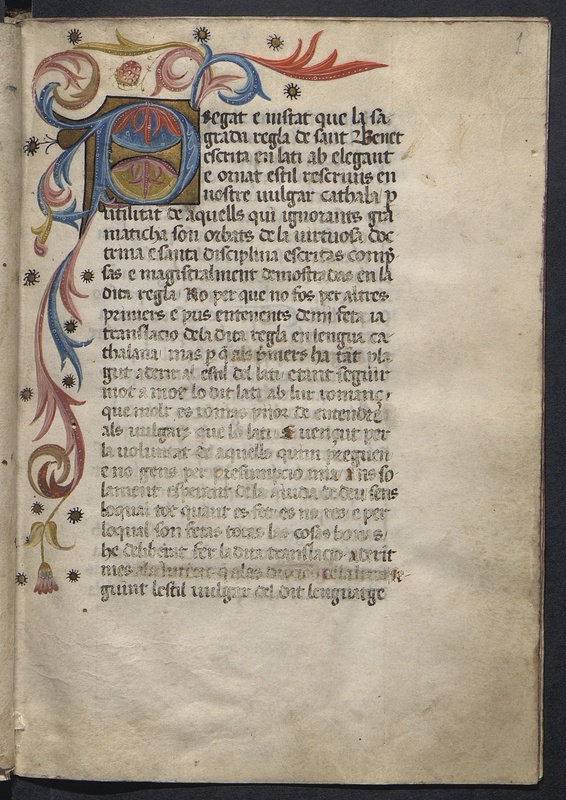 1
Pregat e instat que la sa
grada regla de sant Benet
escrita en lati ab elegant
e ornat estil rescrius en
nostre vulgar cathala p
utilitat de aquells qui ignorants gra
maticha son orbats de la virtuosa doc
trina e santa disciplina escritas
sas e magistralment demostradas en la
dita regla No per que no fos per altres
primers e pus entenents de mi ja
translacio de la dita regla en lengua ca
thalana mas p q als primers ha tat pla
gut aderir al estil del lati
mot a mot lo dit lati ab lur romanç
que molt es pijor de entendre
als vulgars que lo lati E vençut per
la voluntat de aquells quim preguen
e no gens per presumpcio mia so
lament esperant de la ajuda de deu sens
loqual tot quant es fet es no res e per
loqual son fetas totas las cosas bonas
he deliberat fer la dita translacio aderit
mes a la
guint lestil vulgar del dit lenguatge